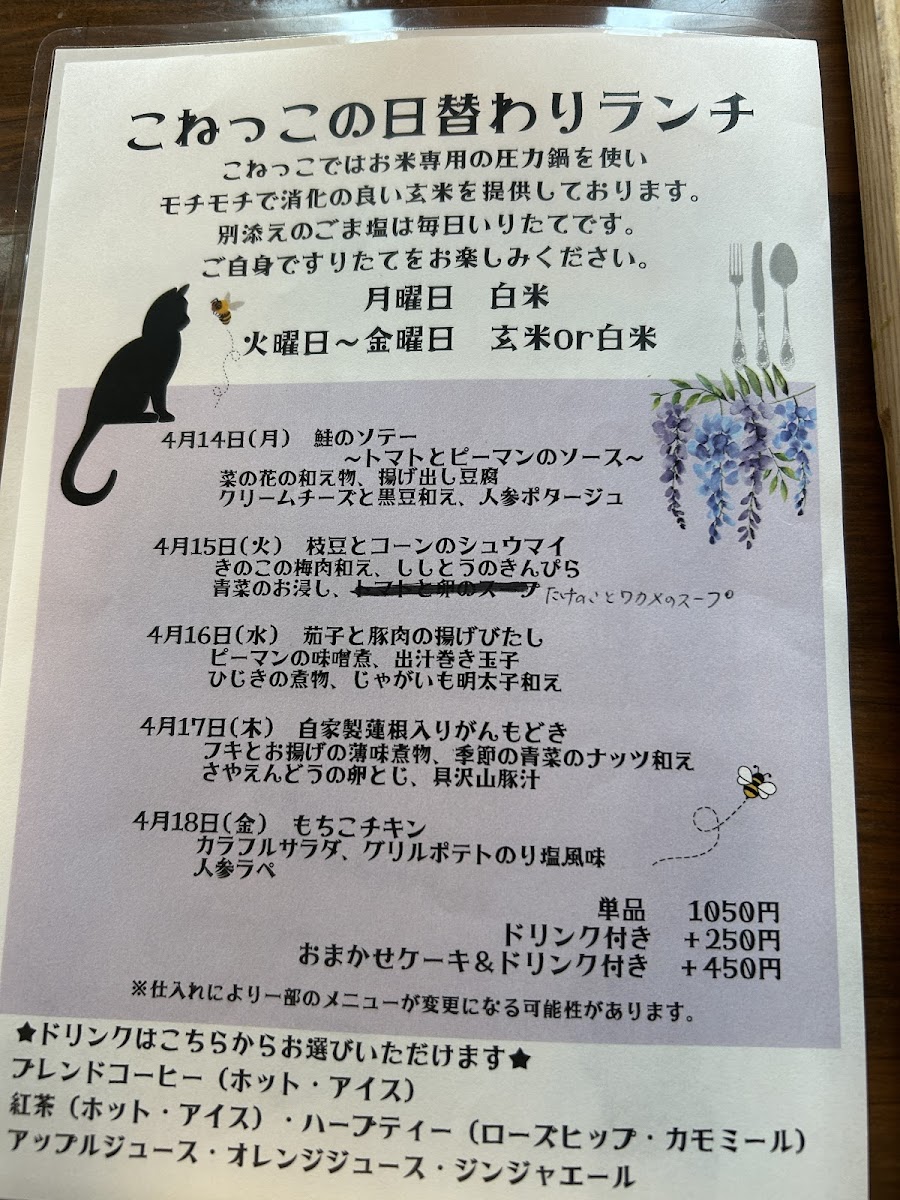 こねっこの日替わりランチ
こねっこではお米専用の圧力鍋を使い
モチモチで消化の良い玄米を提供しております。
別添えのごま塩は毎日いりたてです。
ご自身ですりたてをお楽しみください。
月曜日　白米
火曜日～金曜日　玄米or白米
4月14日(月)　鮭のソテー
～トマトとピーマンのソース～
菜の花の和え物、揚げ出し豆腐
クリームチーズと黒豆和え、人参ポタージュ
4月15日(火)　枝豆とコーンのシュウマイ
きのこの梅肉和え、ししとうのきんぴら
青菜のお浸し、トマトと卵のスープ たけのことワカメのスープ
4月16日(水)　茄子と豚肉の揚げびたし
ピーマンの味噌煮、出汁巻き玉子
ひじきの煮物、じゃがいも明太子和え
4月17日(木)　自家製蓮根入りがんもどき
フキとお揚げの薄味煮物、季節の青菜のナッツ和え
さやえんどうの卵とじ、具沢山豚汁
4月18日(金)　もちこチキン
カラフルサラダ、グリルポテトのり塩風味
人参ラペ
単品　1050円
ドリンク付き　＋250円
おまかせケーキ＆ドリンク付き　＋450円
※仕入れにより一部のメニューが変更になる可能性があります。
★ドリンクはこちらからお選びいただけます★
ブレンドコーヒー（ホット・アイス）
紅茶（ホット・アイス）・ハーブティー（ローズヒップ・カモミール）
アップルジュース・オレンジジュース・ジンジャエール